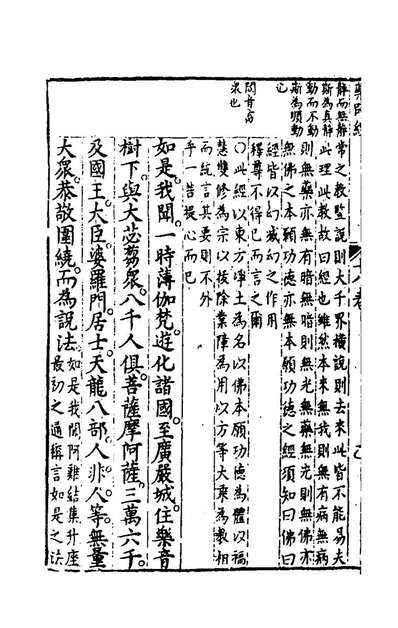 藥師經
靜而無靜
斯為真靜
動而不動
斯為明動
也
閱音店
眾也
常之教豎說則大千界橫說則去來此皆不能易夫
此理此教故曰經也雖然本來無我則無有病無病
則無藥亦無有暗無暗則無光無藥無光則無佛亦
無佛之本願功德亦無本願功德之經須知曰佛曰
經皆以幻滅幻之作用
釋尊不得已而言之爾
〇此經以東方淨土為名以佛本願功德為體以福
慧雙修為宗以拔除業障為用以方等大乘為教相
而統言其要則不外
乎一菩提心而已
如是我聞一時薄伽梵遊化諸國至廣嚴城住樂音
樹下與大苾芻眾八千人俱菩薩摩訶薩三萬六千
及國王大臣婆羅門居士天龍八部人非人等無量
大眾恭敬圍繞而為說法如是我聞阿難結集升座
最初之通稱言如是之法